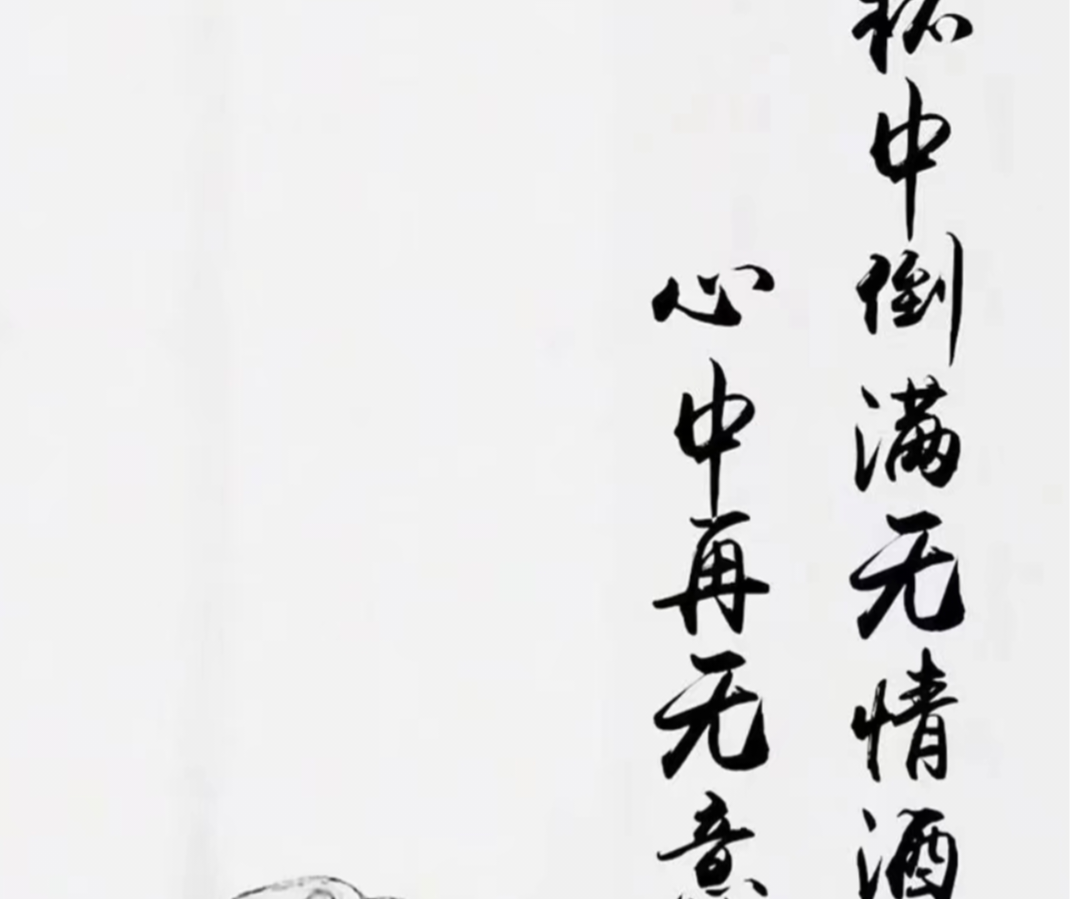 杯中倒满无情酒
心中再无意